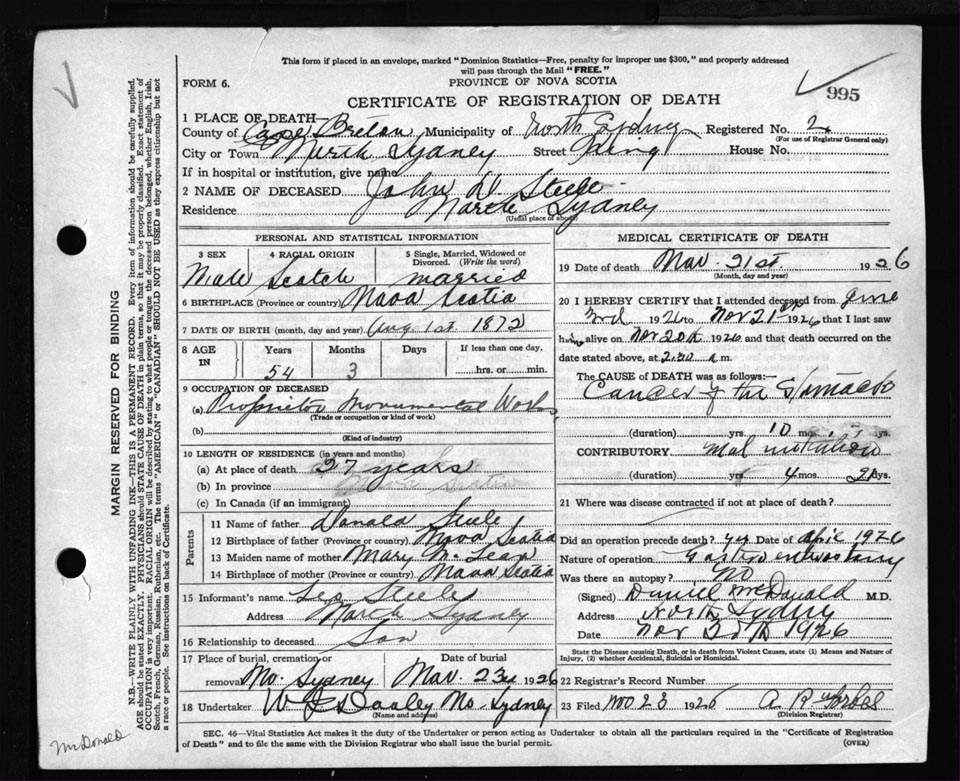 This form if placed in an envelope, marked "Dominion Statistics—Free, penalty for improper use $300," and properly addressed
will pass through the Mail "FREE."
FORM 6.
PROVINCE OF NOVA SCOTIA
995
CERTIFICATE OF REGISTRATION OF DEATH
1 PLACE OF DEATH—
County of Cape Breton Municipality of North Sydney Registered No. 2
(For use of Registrar General only)
City or Town North Sydney Street King House No.
If in hospital or institution, give name
2 NAME OF DECEASED John D. Steele
Residence North Sydney
(Usual place of abode)
PERSONAL AND STATISTICAL INFORMATION
3 SEX 4 RACIAL ORIGIN 5 Single, Married, Widowed or
Divorced. (Write the word)
Male Scotch married
6 BIRTHPLACE (Province or country) Nova Scotia
7 DATE OF BIRTH (month, day and year) Aug 1st 1872
8 AGE IN Years Months Days If less than one day,
54 3 hrs. or min.
9 OCCUPATION OF DECEASED
(a) Proprietor Monumental Works
(Trade or occupation or kind of work)
(b)
(Kind of industry)
10 LENGTH OF RESIDENCE (in years and months)
(a) At place of death 27 years
(b) In province Nova Scotia
(c) In Canada (if an immigrant)
Parents
11 Name of father Donald Steele
12 Birthplace of father (Province or country) Nova Scotia
13 Maiden name of mother Mary McLean
14 Birthplace of mother (Province or country) Nova Scotia
15 Informant's name Leo Steele
Address North Sydney
16 Relationship to deceased Son
17 Place of burial, cremation or removal No. Sydney Date of burial Nov. 23rd 1926
18 Undertaker W Dooley No. Sydney
(Name and address)
MEDICAL CERTIFICATE OF DEATH
19 Date of death Nov. 21st 1926
(Month, day and year)
20 I HEREBY CERTIFY that I attended deceased from June
3rd 1926 to Nov 21st 1926 that I last saw
him alive on Nov 20th 1926 and that death occurred on the
date stated above, at 2.30 a m.
The CAUSE OF DEATH was as follows:—
Cancer of the Stomach
(duration) yrs. 10 mos. dys.
CONTRIBUTORY Malnutrition
(duration) yrs. 4 mos. 21 dys.
21 Where was disease contracted if not at place of death?
Did an operation precede death? yes Date of April 1926
Nature of operation Gastroenterostomy
Was there an autopsy? No
(Signed) Daniel McDonald M.D.
Address North Sydney
Date Nov 1926
State the Disease causing Death, or in death from Violent Causes, state (1) Means and Nature of
Injury, (2) whether Accidental, Suicidal or Homicidal.
22 Registrar's Record Number
23 Filed Nov 23 1926 A. R. Forbes
(Division Registrar)
SEC. 46—Vital Statistics Act makes it the duty of the Undertaker or person acting as Undertaker to obtain all the particulars required in the "Certificate of Registration
of Death" and to file the same with the Division Registrar who shall issue the burial permit.
(OVER)
MARGIN RESERVED FOR BINDING
N.B.—WRITE PLAINLY WITH UNFADING INK—THIS IS A PERMANENT RECORD. Every item of information should be carefully supplied.
AGE should be stated EXACTLY. PHYSICIANS should STATE CAUSE OF DEATH in plain terms, so that it may be properly classified. Exact statement of
OCCUPATION is very important. RACIAL ORIGIN will be described by stating to what people or tongue the deceased person belonged, whether English, Irish,
Scotch, French, German, Russian, Ruthenian, etc. The terms "AMERICAN" or "CANADIAN" SHOULD NOT BE USED as they express citizenship but not
a race or people. See instructions on back of Certificate.
McDonald